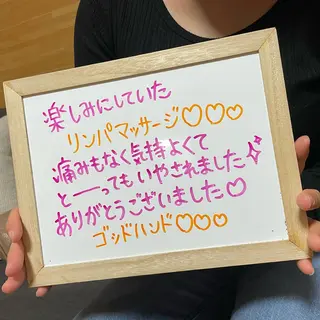 楽しみにしていた
リンパマッサージ♡♡♡
痛みもなく気持よくて
と――ってもいやされました✧
ありがとうございました♡
ゴッドハンド♡♡♡